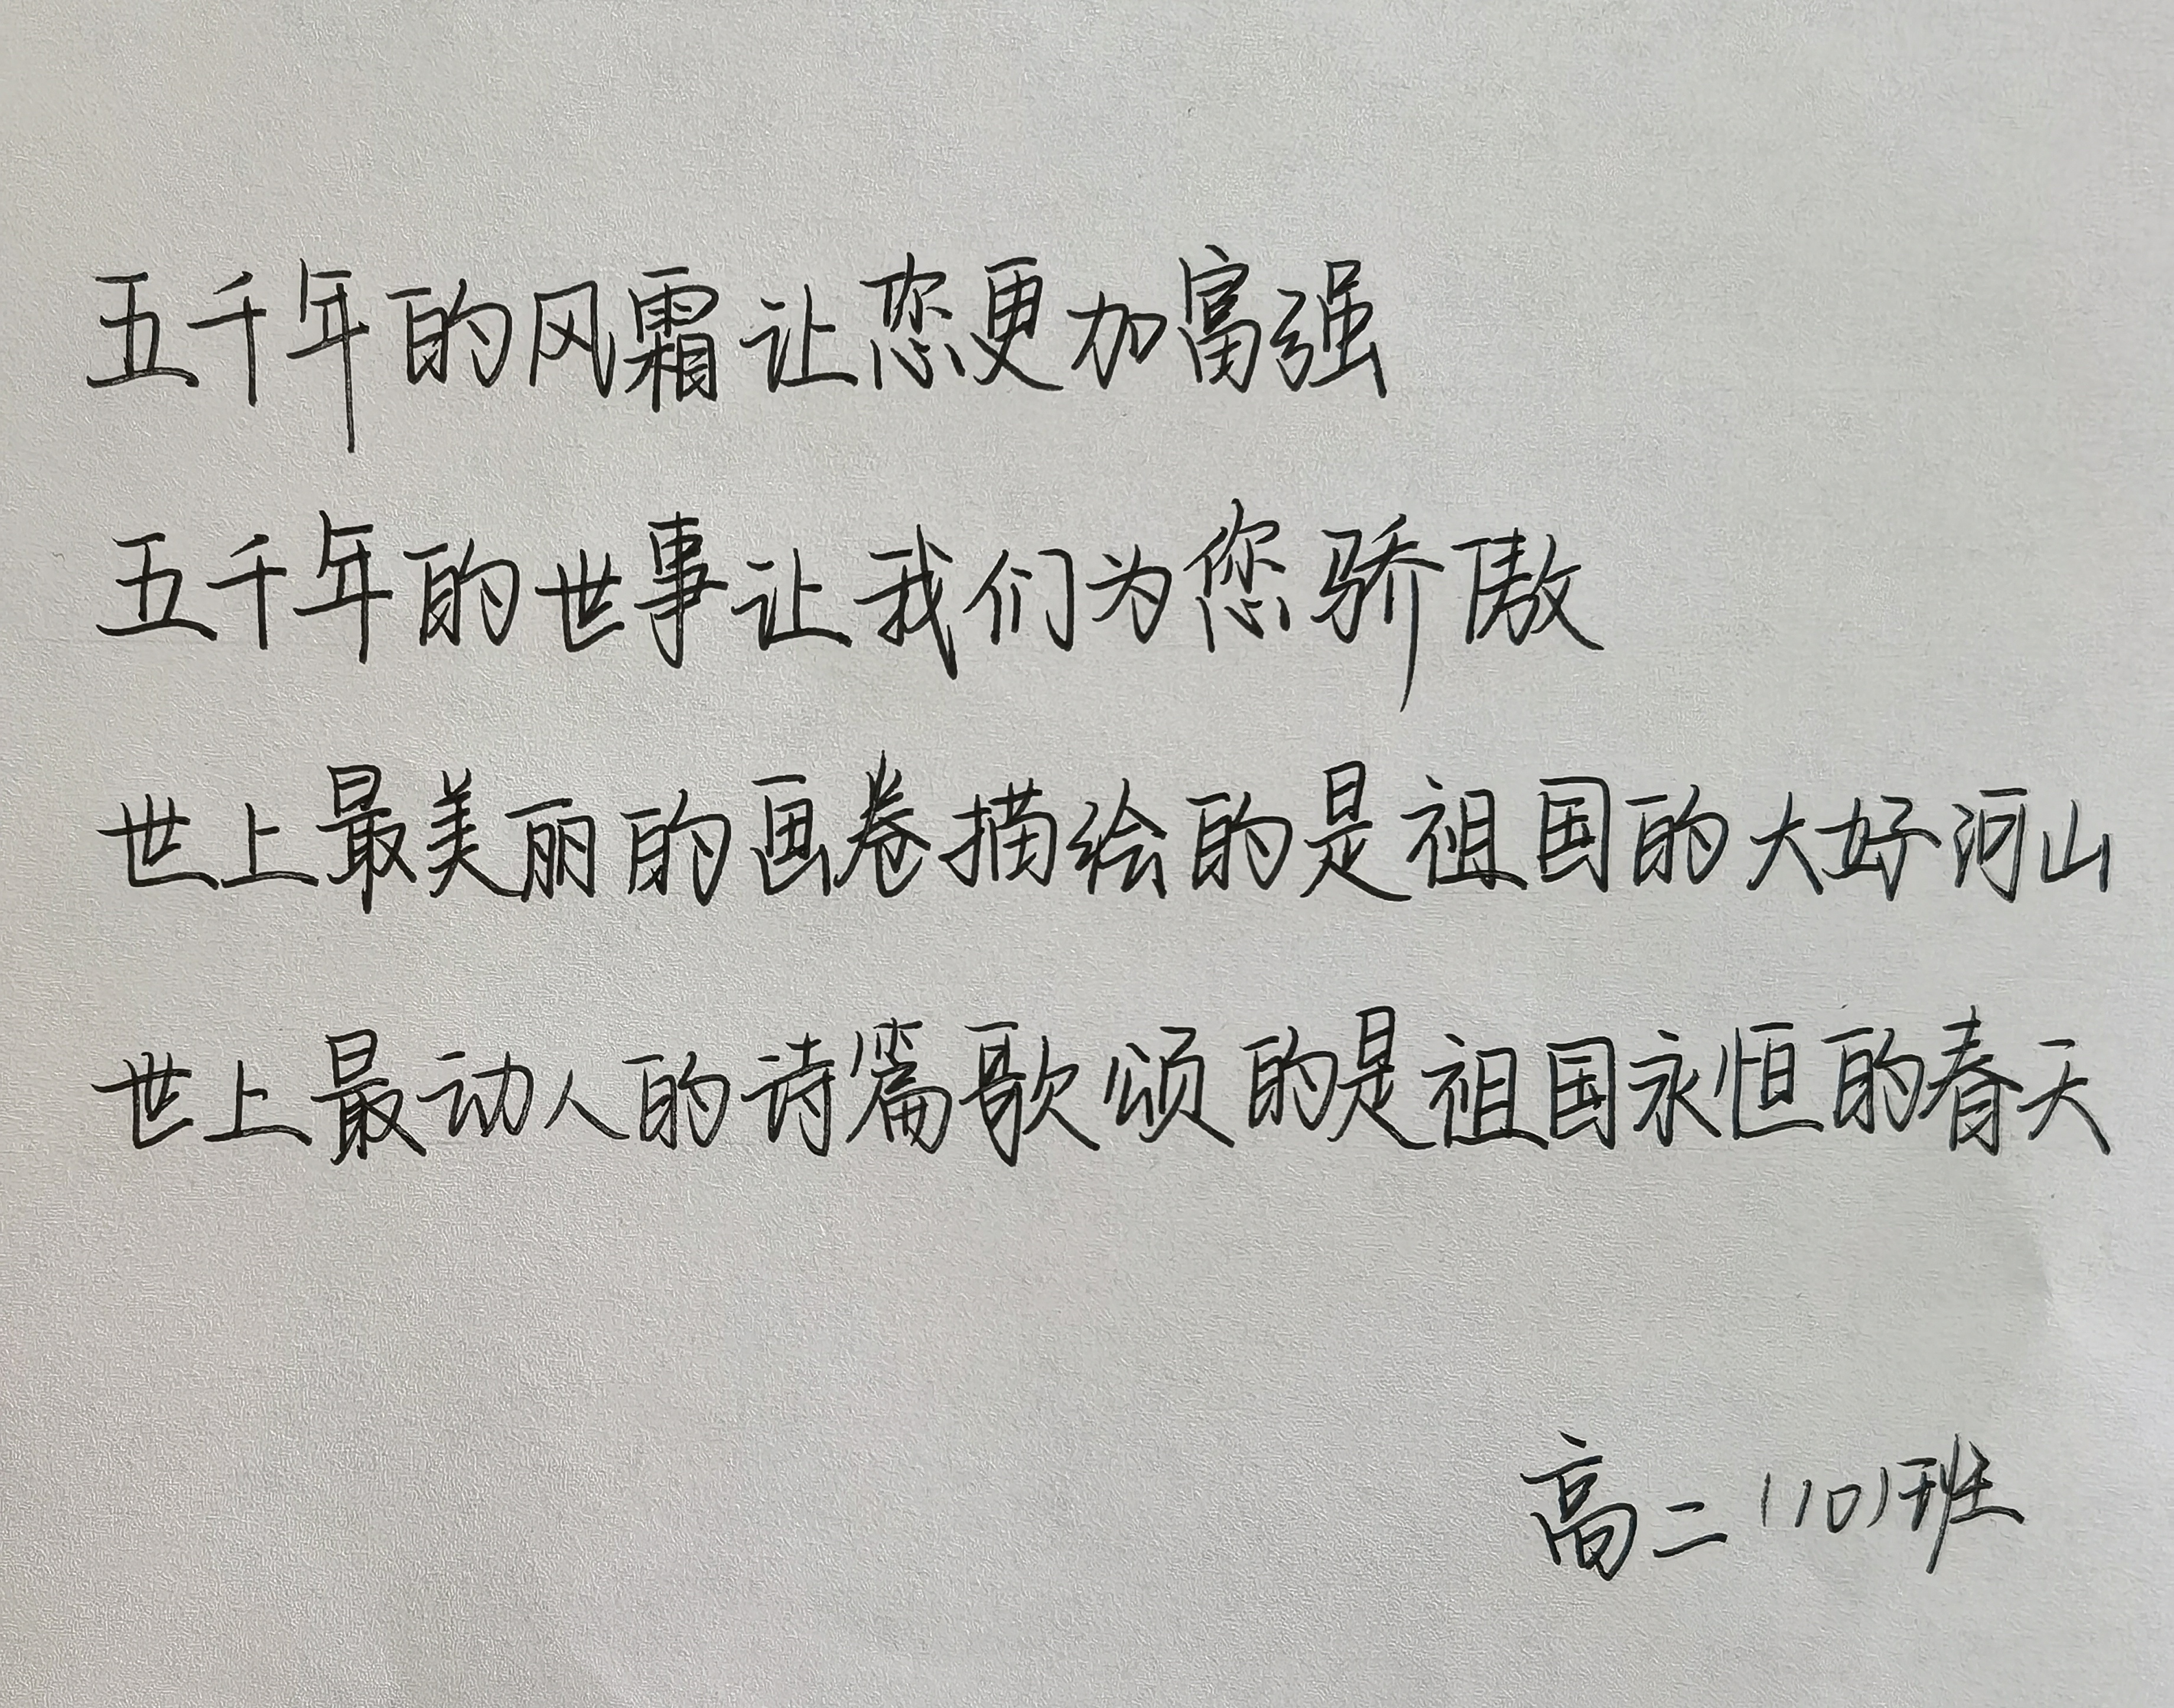 五千年的风霜让您更加富强
五千年的世事让我们为您骄傲
世上最美丽的画卷描绘的是祖国的大好河山
世上最动人的诗篇歌颂的是祖国永恒的春天
高二(10)班